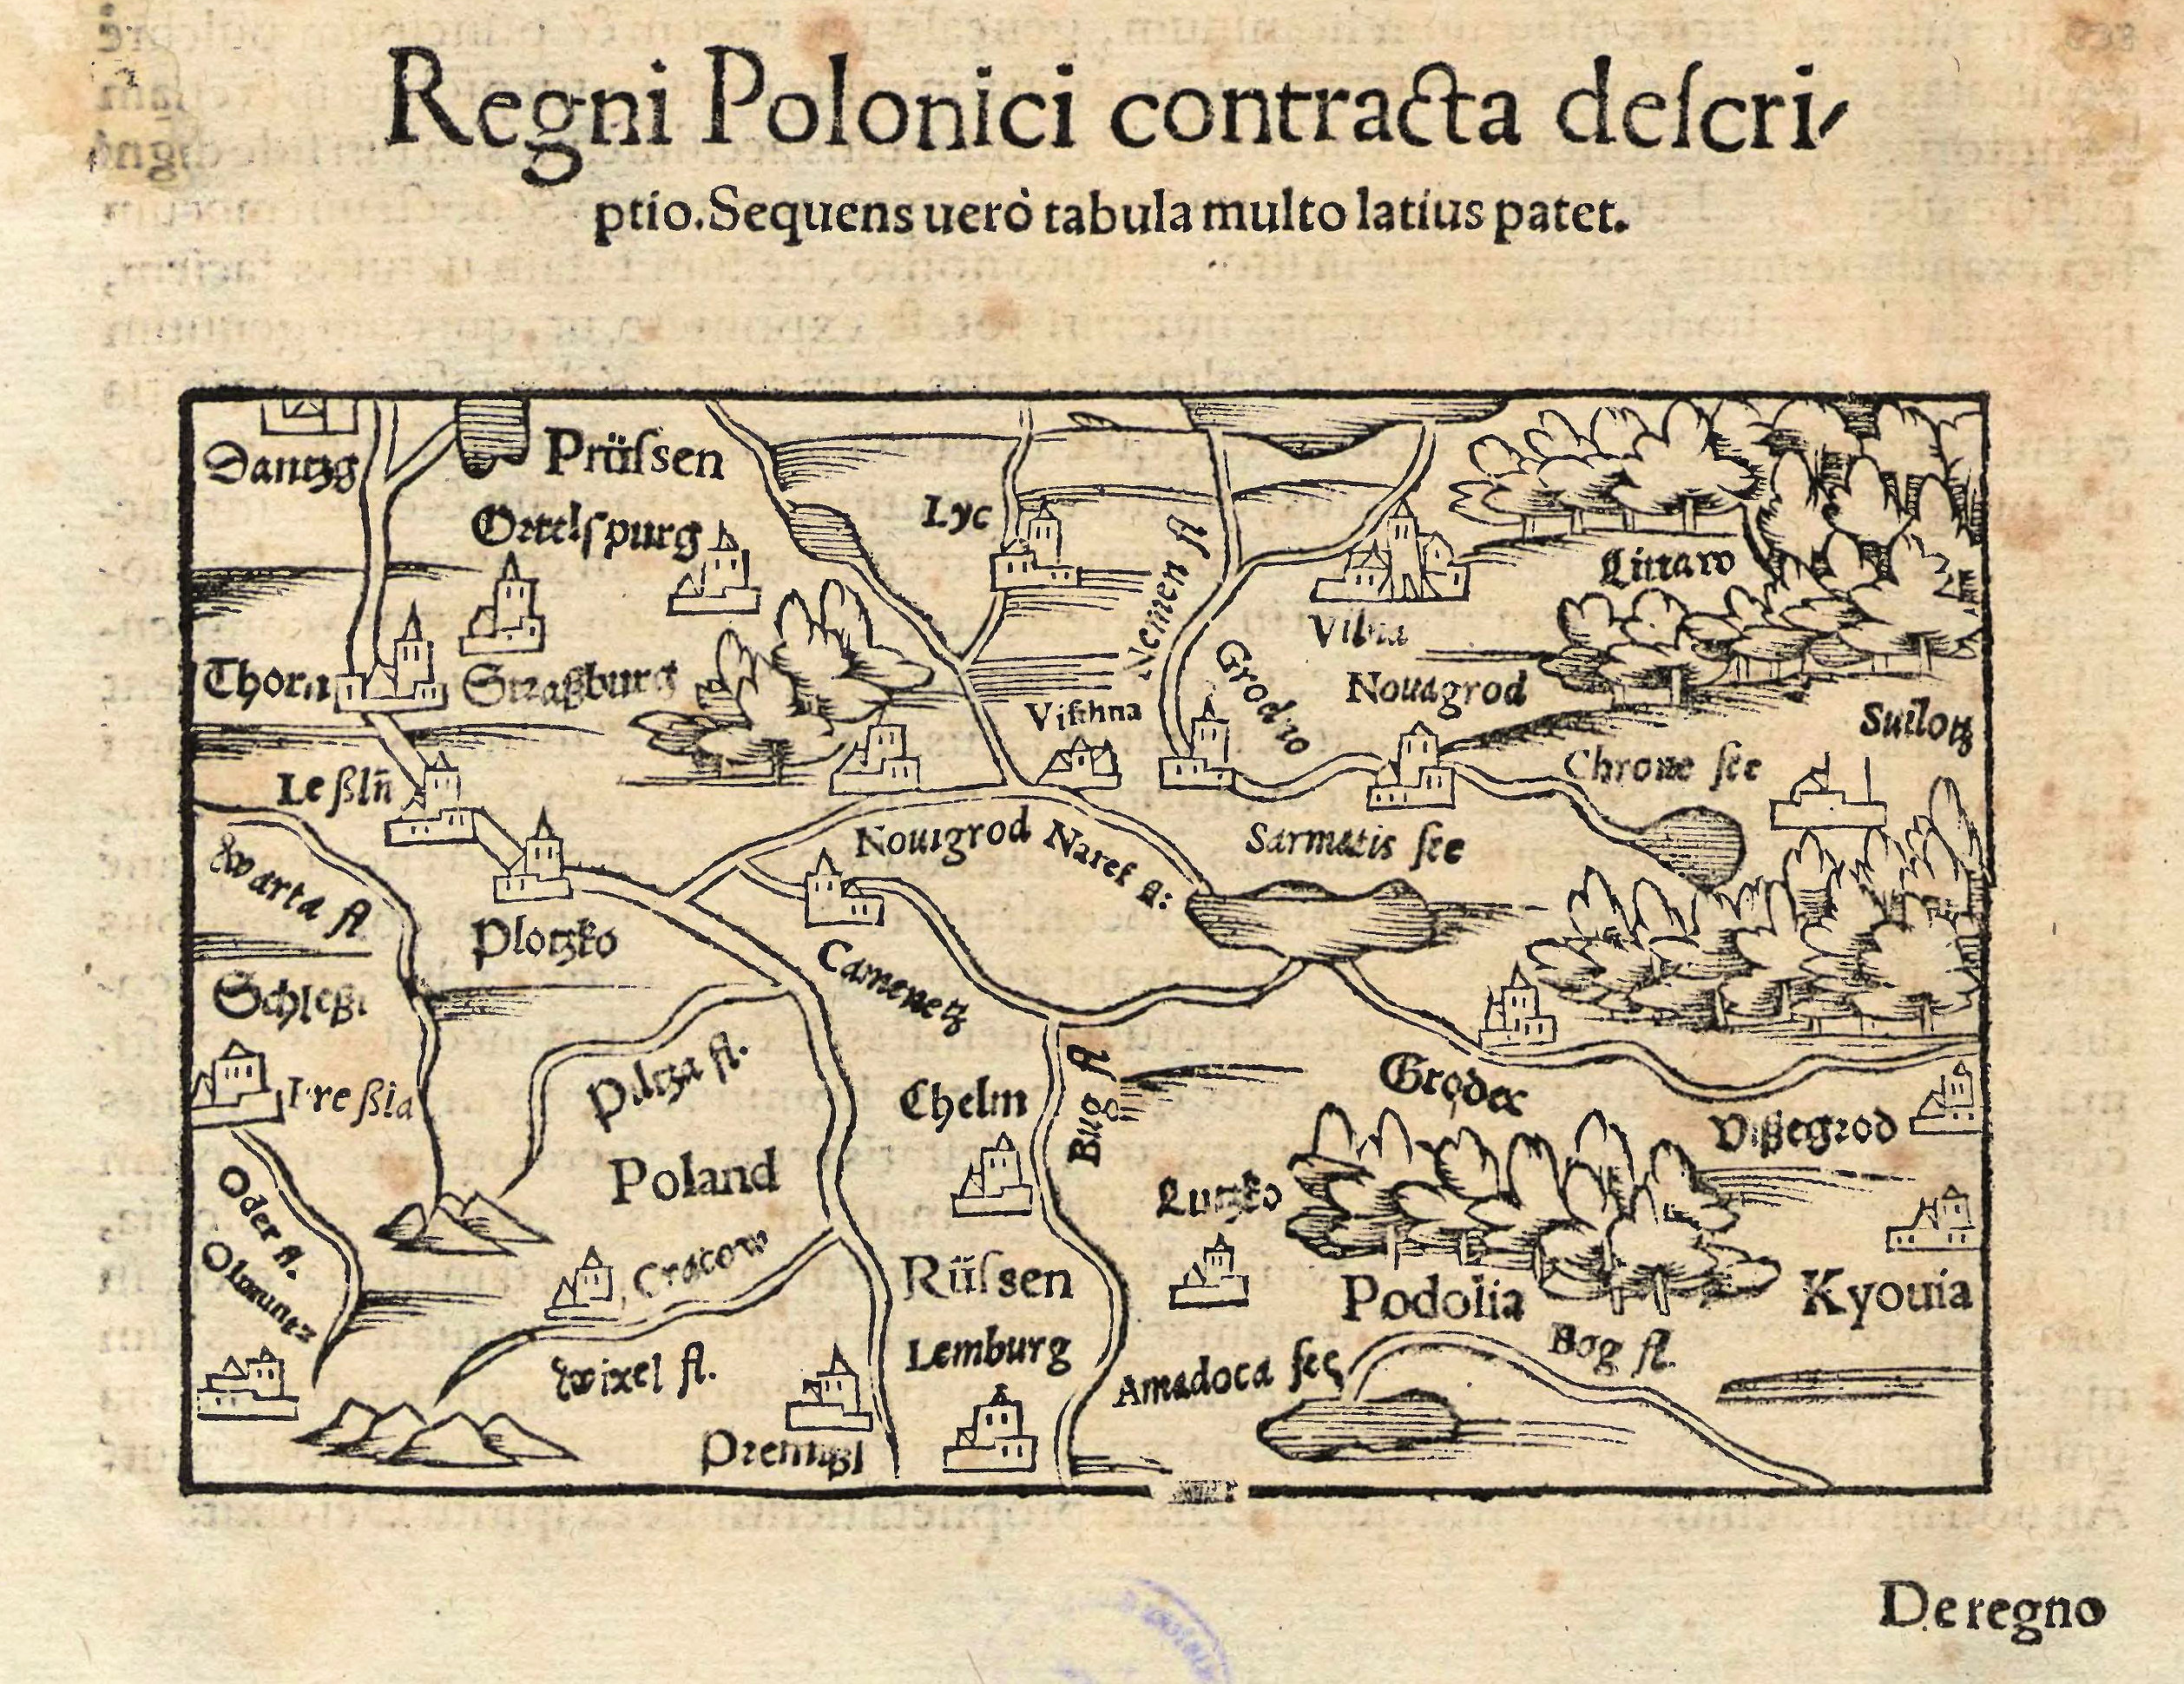 Regni Polonici contracta deſcri⸗
ptio. Sequens uerò tabula multo latius patet.
Dantzg
Prüſsen
Ortelſpurg
Lyc
Nemen fl
Littaw
Vilna
Thorn
Straßburg
Grodno
Nouagrod
Viſchna
Suilotz
Chrone ſee
Leßlñ
Nouigrod
Naref fl:
Sarmatis ſee
Warta fl
Plotzko
Camenetz
Schleßi
Preßla
Piltza fl.
Chelm
Bug fl
Grodex
Vißegrod
Poland
Lutzko
Oder fl.
Olomuntz
Cracow
Rüſsen
Podolia
Kyouia
Wixel fl.
Lemburg
Amadoca ſee
Bog fl.
Premißl
De regno